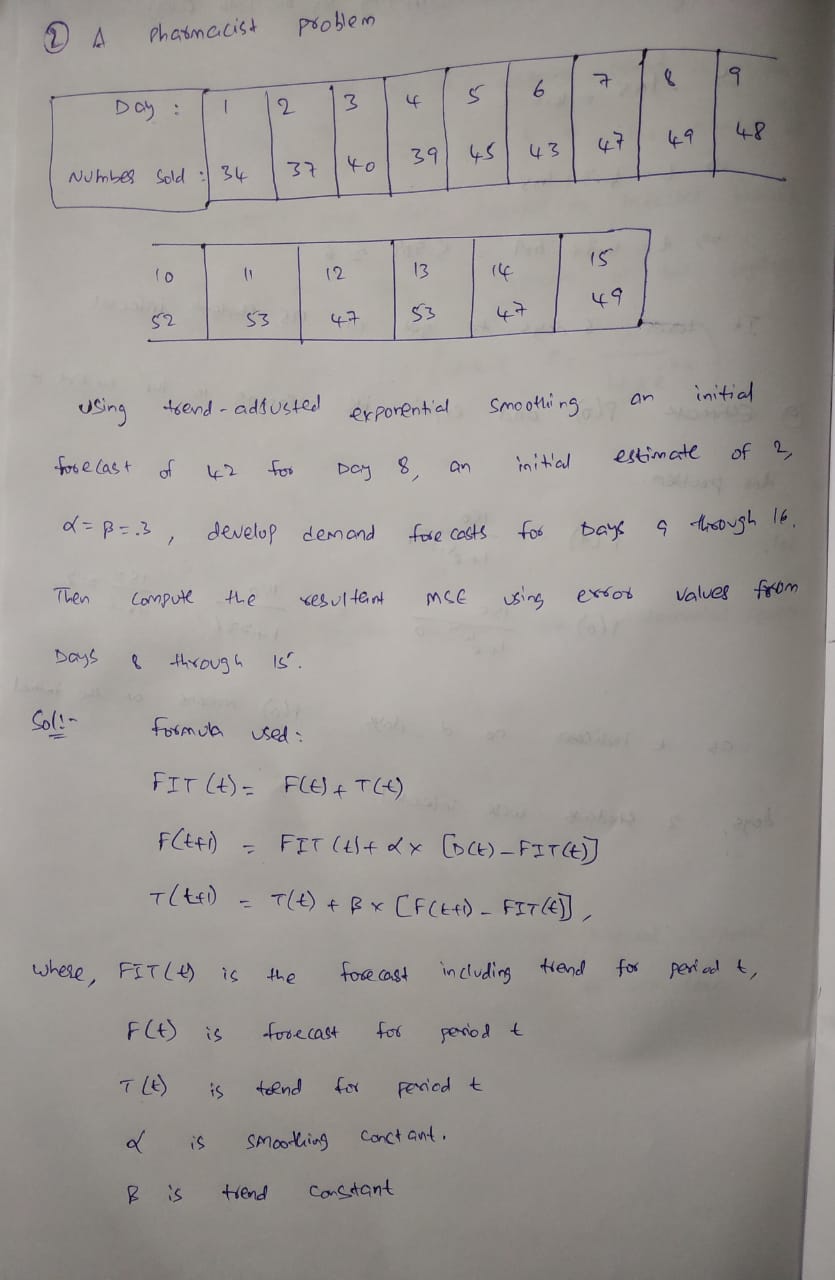 ② A Pharmacist problem
Day : 1 2 3 4 5 6 7 8 9
Number Sold : 34 37 40 39 45 43 47 49 48
10 11 12 13 14 15
52 53 47 53 47 49
using trend-adjusted exponential smoothing an initial
forecast of 42 for Day 8, an initial estimate of 2,
α = β = .3 , develop demand forecasts for Days 9 through 16.
Then compute the resultant MSE using error values from
Days 8 through 15.
Sol:-
formula used:
FIT (t) = F(t) + T(t)
F(t+1) = FIT (t) + α x [D(t) - FIT(t)]
T(t+1) = T(t) + β x [F(t+1) - FIT(t)],
where, FIT(t) is the forecast including trend for period t,
F(t) is forecast for period t
T(t) is trend for period t
α is smoothing conctant.
β is trend constant